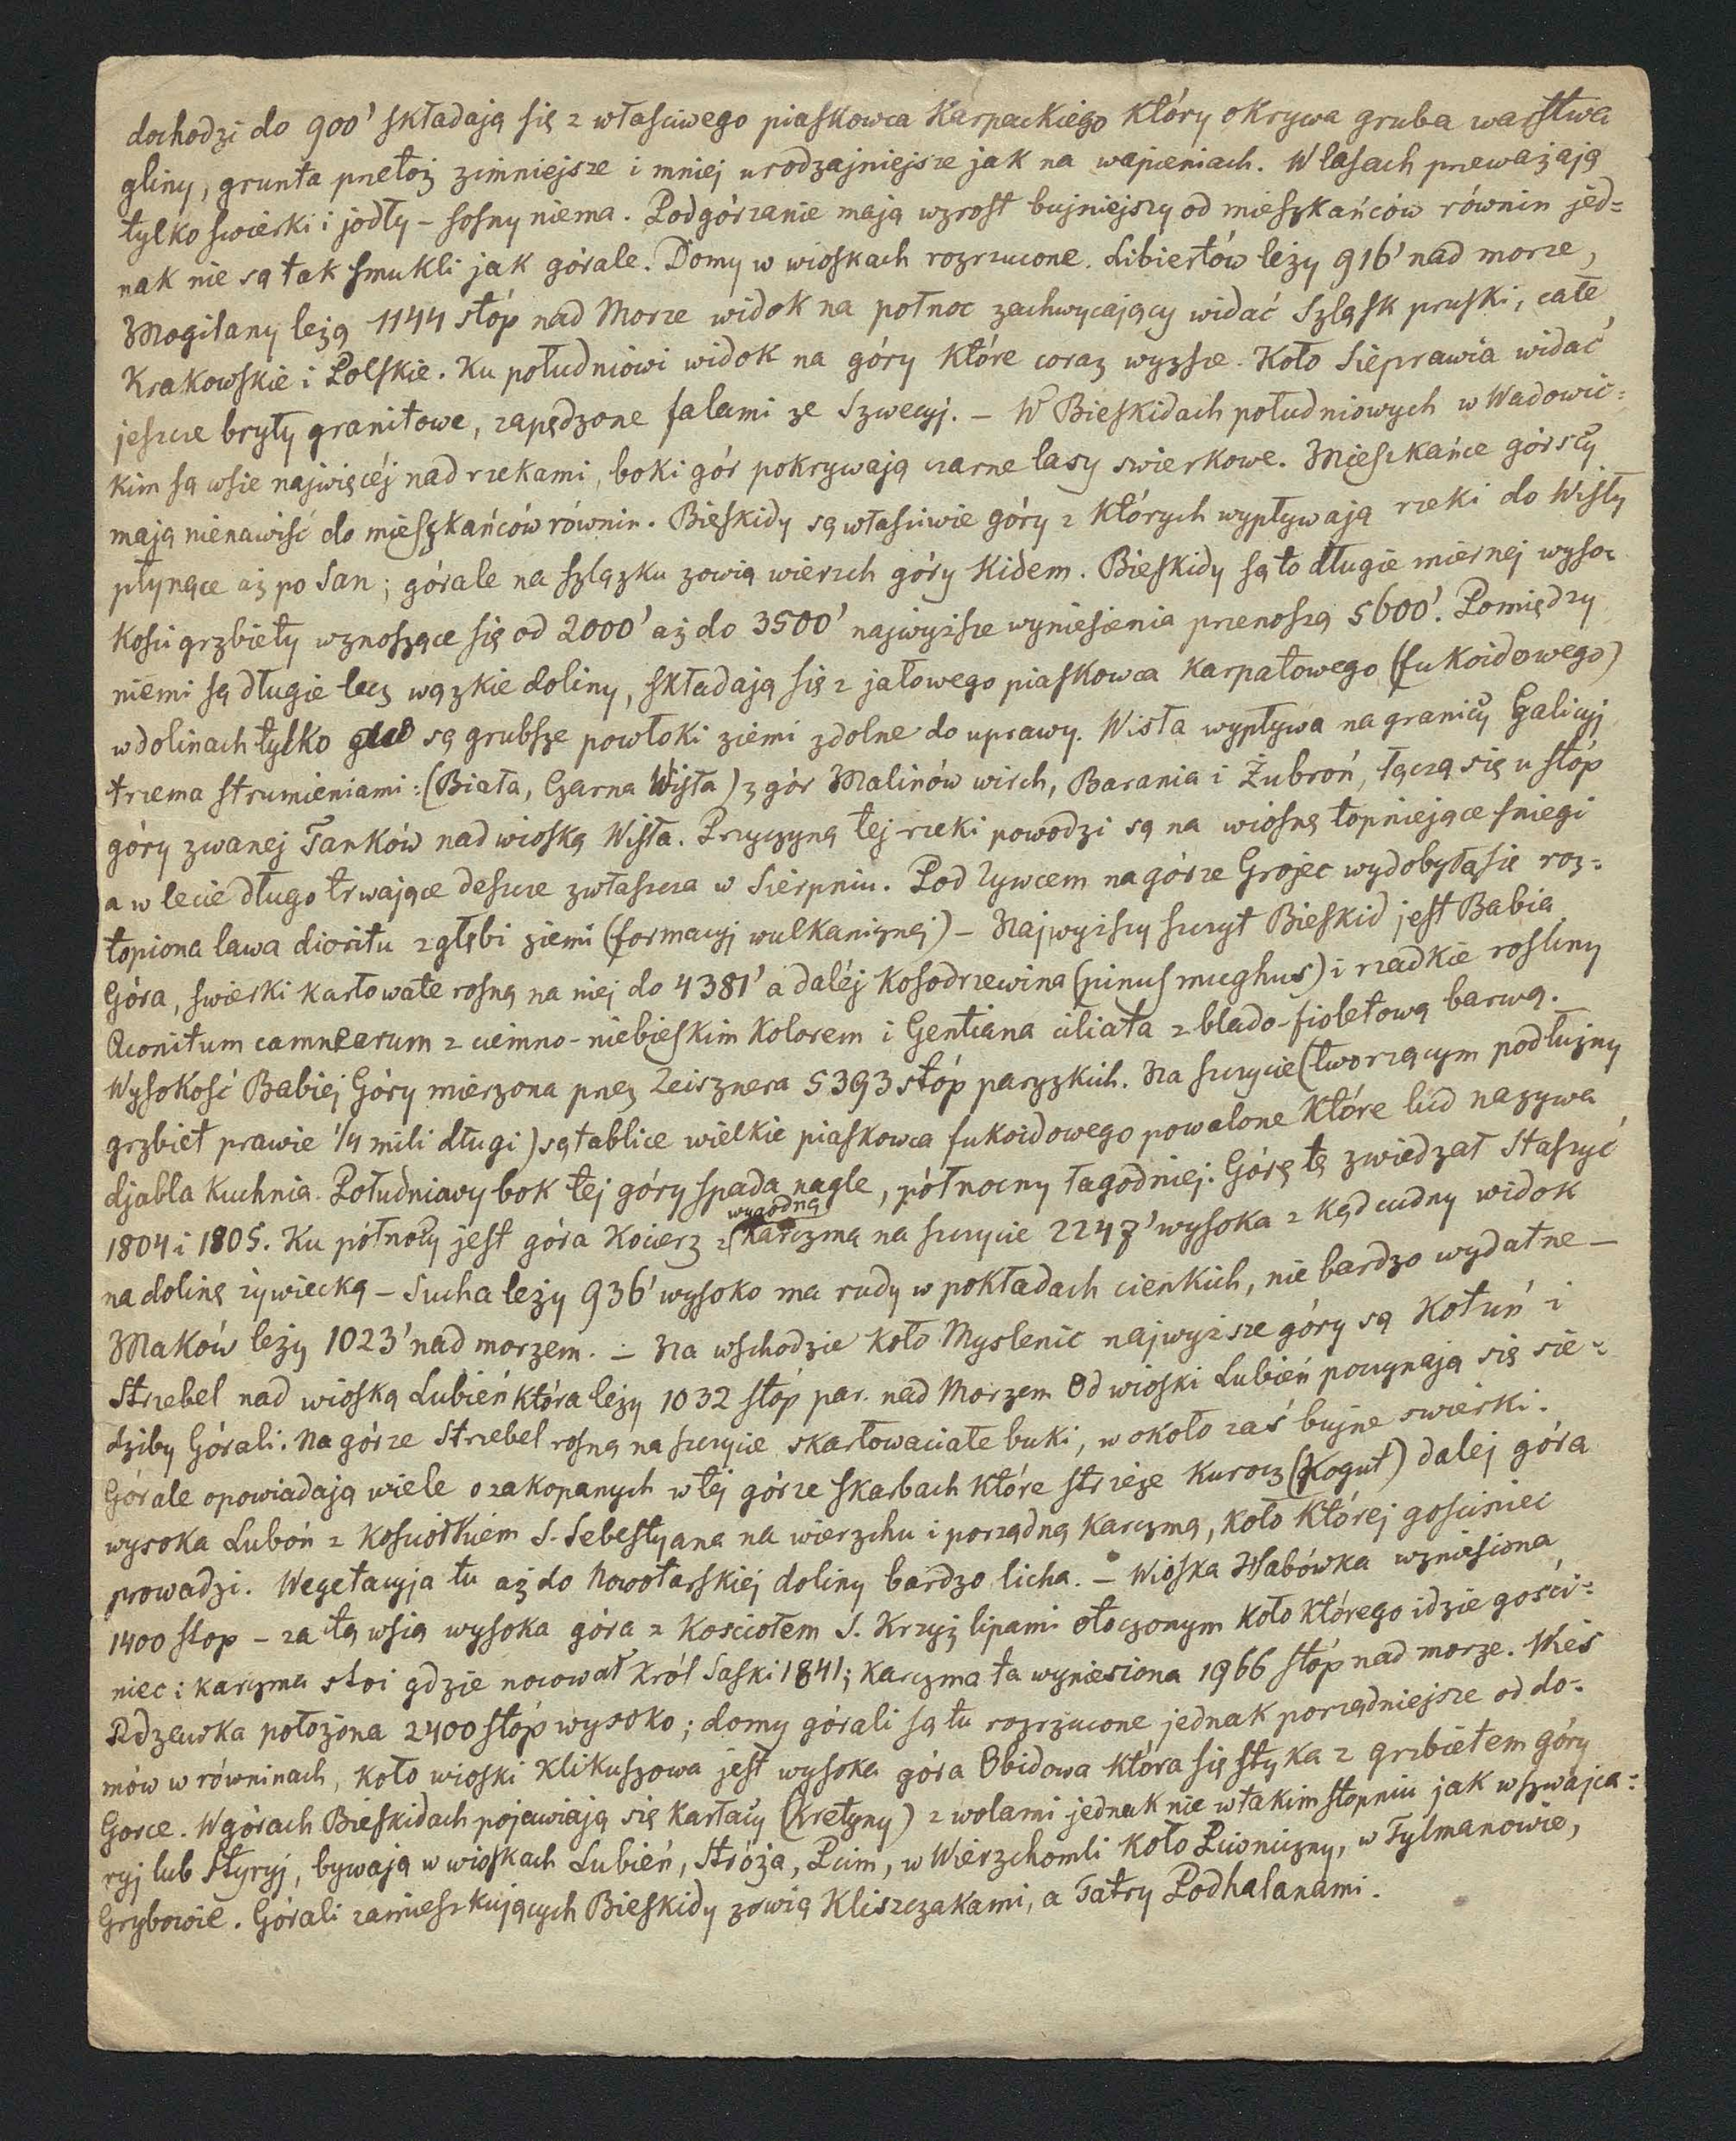 dochodzi do 900' składają się z własciwego piaskowca Karpackiego który okrywa gruba warstwa
gliny, grunta przetoż zimniejsze i mniej urodzajniejsze jak na wapieniach. W lasach przeważają
tylko swierki i jodły – sosny niema. Podgórzanie mają wzrost bujniejszy od mieszkańców równin jed=
nak nie są tak smukli jak górale. Domy w wioskach rozrzucone. Libiertów leży 916' nad morze,
Mogilany leżą 1144 stóp nad Morze widok na połnoc zachwycający widać Szląsk pruski, całe
Krakowskie i Polskie. Ku południowi widok na góry które coraz wyzsze. Koło Sieprawia widać
jeszcze bryły granitowe, zapędzone falami ze Szwecyj. – W Bieskidach południowych w Wadowic=
kim są wsie najwięcéj nad rzekami, boki gór pokrywają czarne lasy swierkowe. Mieszkańce górscy
mają nienawiść do mieszkańców równin. Bieskidy są własciwie góry z których wypływają rzeki do Wisły
płynące aż po San; górale na szlązku zowią wierzch góry Kidem. Bieskidy są to długie miernej wyso=
kosci grzbiety wznoszące się od 2000' aż do 3500' najwyższe wyniesienia przenoszą 5600'. Pomiędzy
niemi są długie lecz wązkie doliny, składają się z jałowego piaskowca karpatowego (fukoidowego)
w dolinach tylko są grubsze powłoki ziemi zdolne do uprawy. Wisła wypływa na granicy Galicyj
trzema strumieniami: (Biała, Czarna Wisła) z gór Malinów wirch, Barania i Żubroń, łączą się u stóp
góry zwanej Tanków nad wioską Wisła. Przyczyną tej rzeki powodzi są na wiosnę topniejące sniegi
a w lecie długo trwające deszcze zwłaszcza w Sierpniu. Pod Zywcem na górze Grojec wydobyła sie roz=
topiona lawa dioritu z głębi ziemi (formacyj wulkanicznej) – Najwyższy szczyt Bieskid jest Babia
Góra, swierki karłowate rosną na niej do 4381' a daléj kosodrzewina (pinus mughus) i rzadkie rosliny
Aconitum camnearum z ciemno-niebieskim kolorem i Gentiana ciliata z blado-fioletową barwą.
Wysokość Babiej Góry mierzona przez Zeisznera 5393 stóp paryzkich. Na szczycie (tworzącym podłużny
grzbiet prawie 1/4 mili długi) są tablice wielkie piaskowca fukoidowego powalone które lud nazywa
djabla kuchnia. Południowy bok tej góry spada nagle, północny łagodniej. Górę tę zwiedzał Staszyć
1804 i 1805. Ku północy jest góra Kocierz z wygodną karczmą na szczycie 2247' wysoka z kąd cudny widok
na dolinę żywiecką – Sucha leży 936' wysoko ma rudy w pokładach cienkich, nie bardzo wydatne –
Maków leży 1023' nad morzem. – Na wschodzie koło Myslenic najwyższe góry są Kotuń i
Strzebel nad wioską Lubień która leży 1032 stóp par. nad Morzem Od wioski Lubień poczynają się sie=
dziby Górali. Na górze Strzebel rosną na szczycie skarłowaciałe buki, w około zaś bujne swierki.
Górale opowiadają wiele o zakopanych w tej górze skarbach które strzeże kurocz (Kogut) dalej góra
wysoka Luboń z kosciołkiem S. Sebestyana na wierzchu i porządną karczmą, koło której gosciniec
prowadzi. Wegetacyja tu aż do Nowotarskiej doliny bardzo licha. – Wioska Habówka wzniesiona
1400 stop – za tą wsią wysoka góra z kosciołem S. Krzyż lipami otoczonym koło którego idzie gości=
niec i karczma stoi gdzie nocował Król Saski 1841; karczma ta wyniesiona 1966 stóp nad morze. Wieś
Rdzawka położona 2400 stóp wysoko; domy górali są tu rozrzucone jednak porządniejsze od do=
mów w równinach, koło wioski Klikuszowa jest wysoka góra Obidowa która się styka z grzbietem góry
Gorce. W górach Bieskidach pojawiają się karłacy (kretyny) z wolami jednak nie w takim stopniu jak w szwajca=
ryj lub Styryj, bywają w wioskach Lubień, Stróża, Pcim, w Wierzchomli koło Piwniczny, w Tylmanowie,
Grybowie. Górali zamieszkujących Bieskidy zowią Kliszczakami, a Tatry Podhalanami.